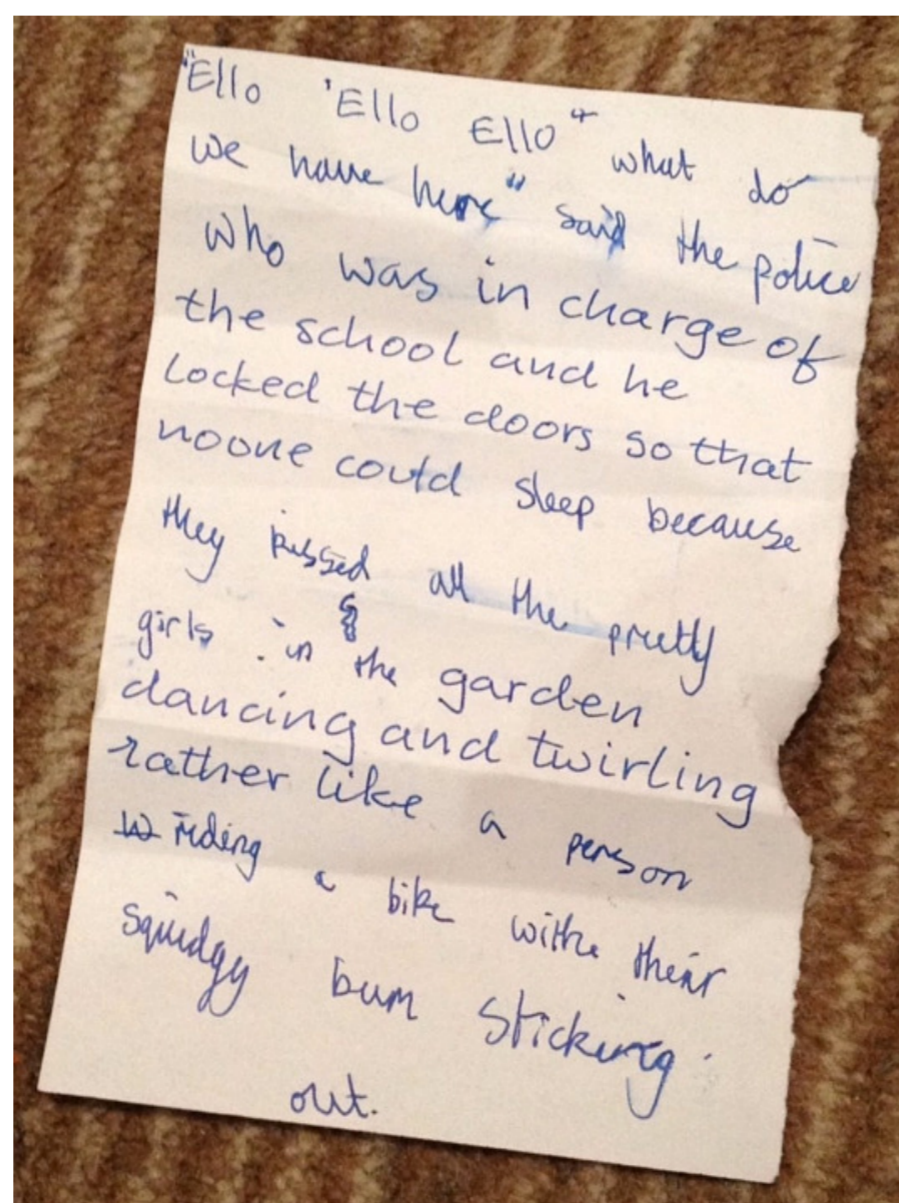 "Ello 'Ello Ello" what do
we have here" said the police
who was in charge of
the school and he
locked the doors so that
noone could sleep because
they kissed all the pretty
girls in the garden
dancing and twirling
rather like a person
riding a bike withe their
squidgy bum sticking
out.